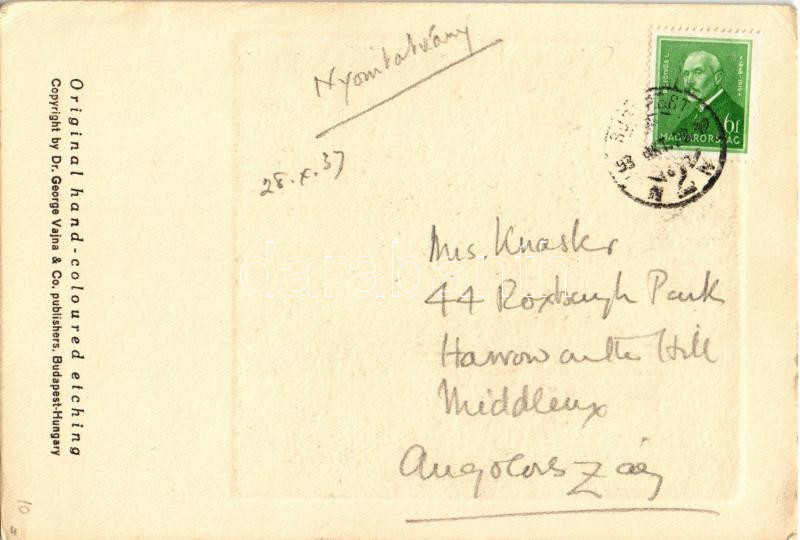 Original hand-coloured etching
Copyright by Dr. George Vajna & Co. publishers, Budapest-Hungary
Nyomtatvány
28.X.37
EÖTVÖS L.
6f
MAGYARORSZÁG
Mrs. Knasker
44 Roxborough Park
Harrow on the Hill
Middlesex
Angolország
10
darabanth